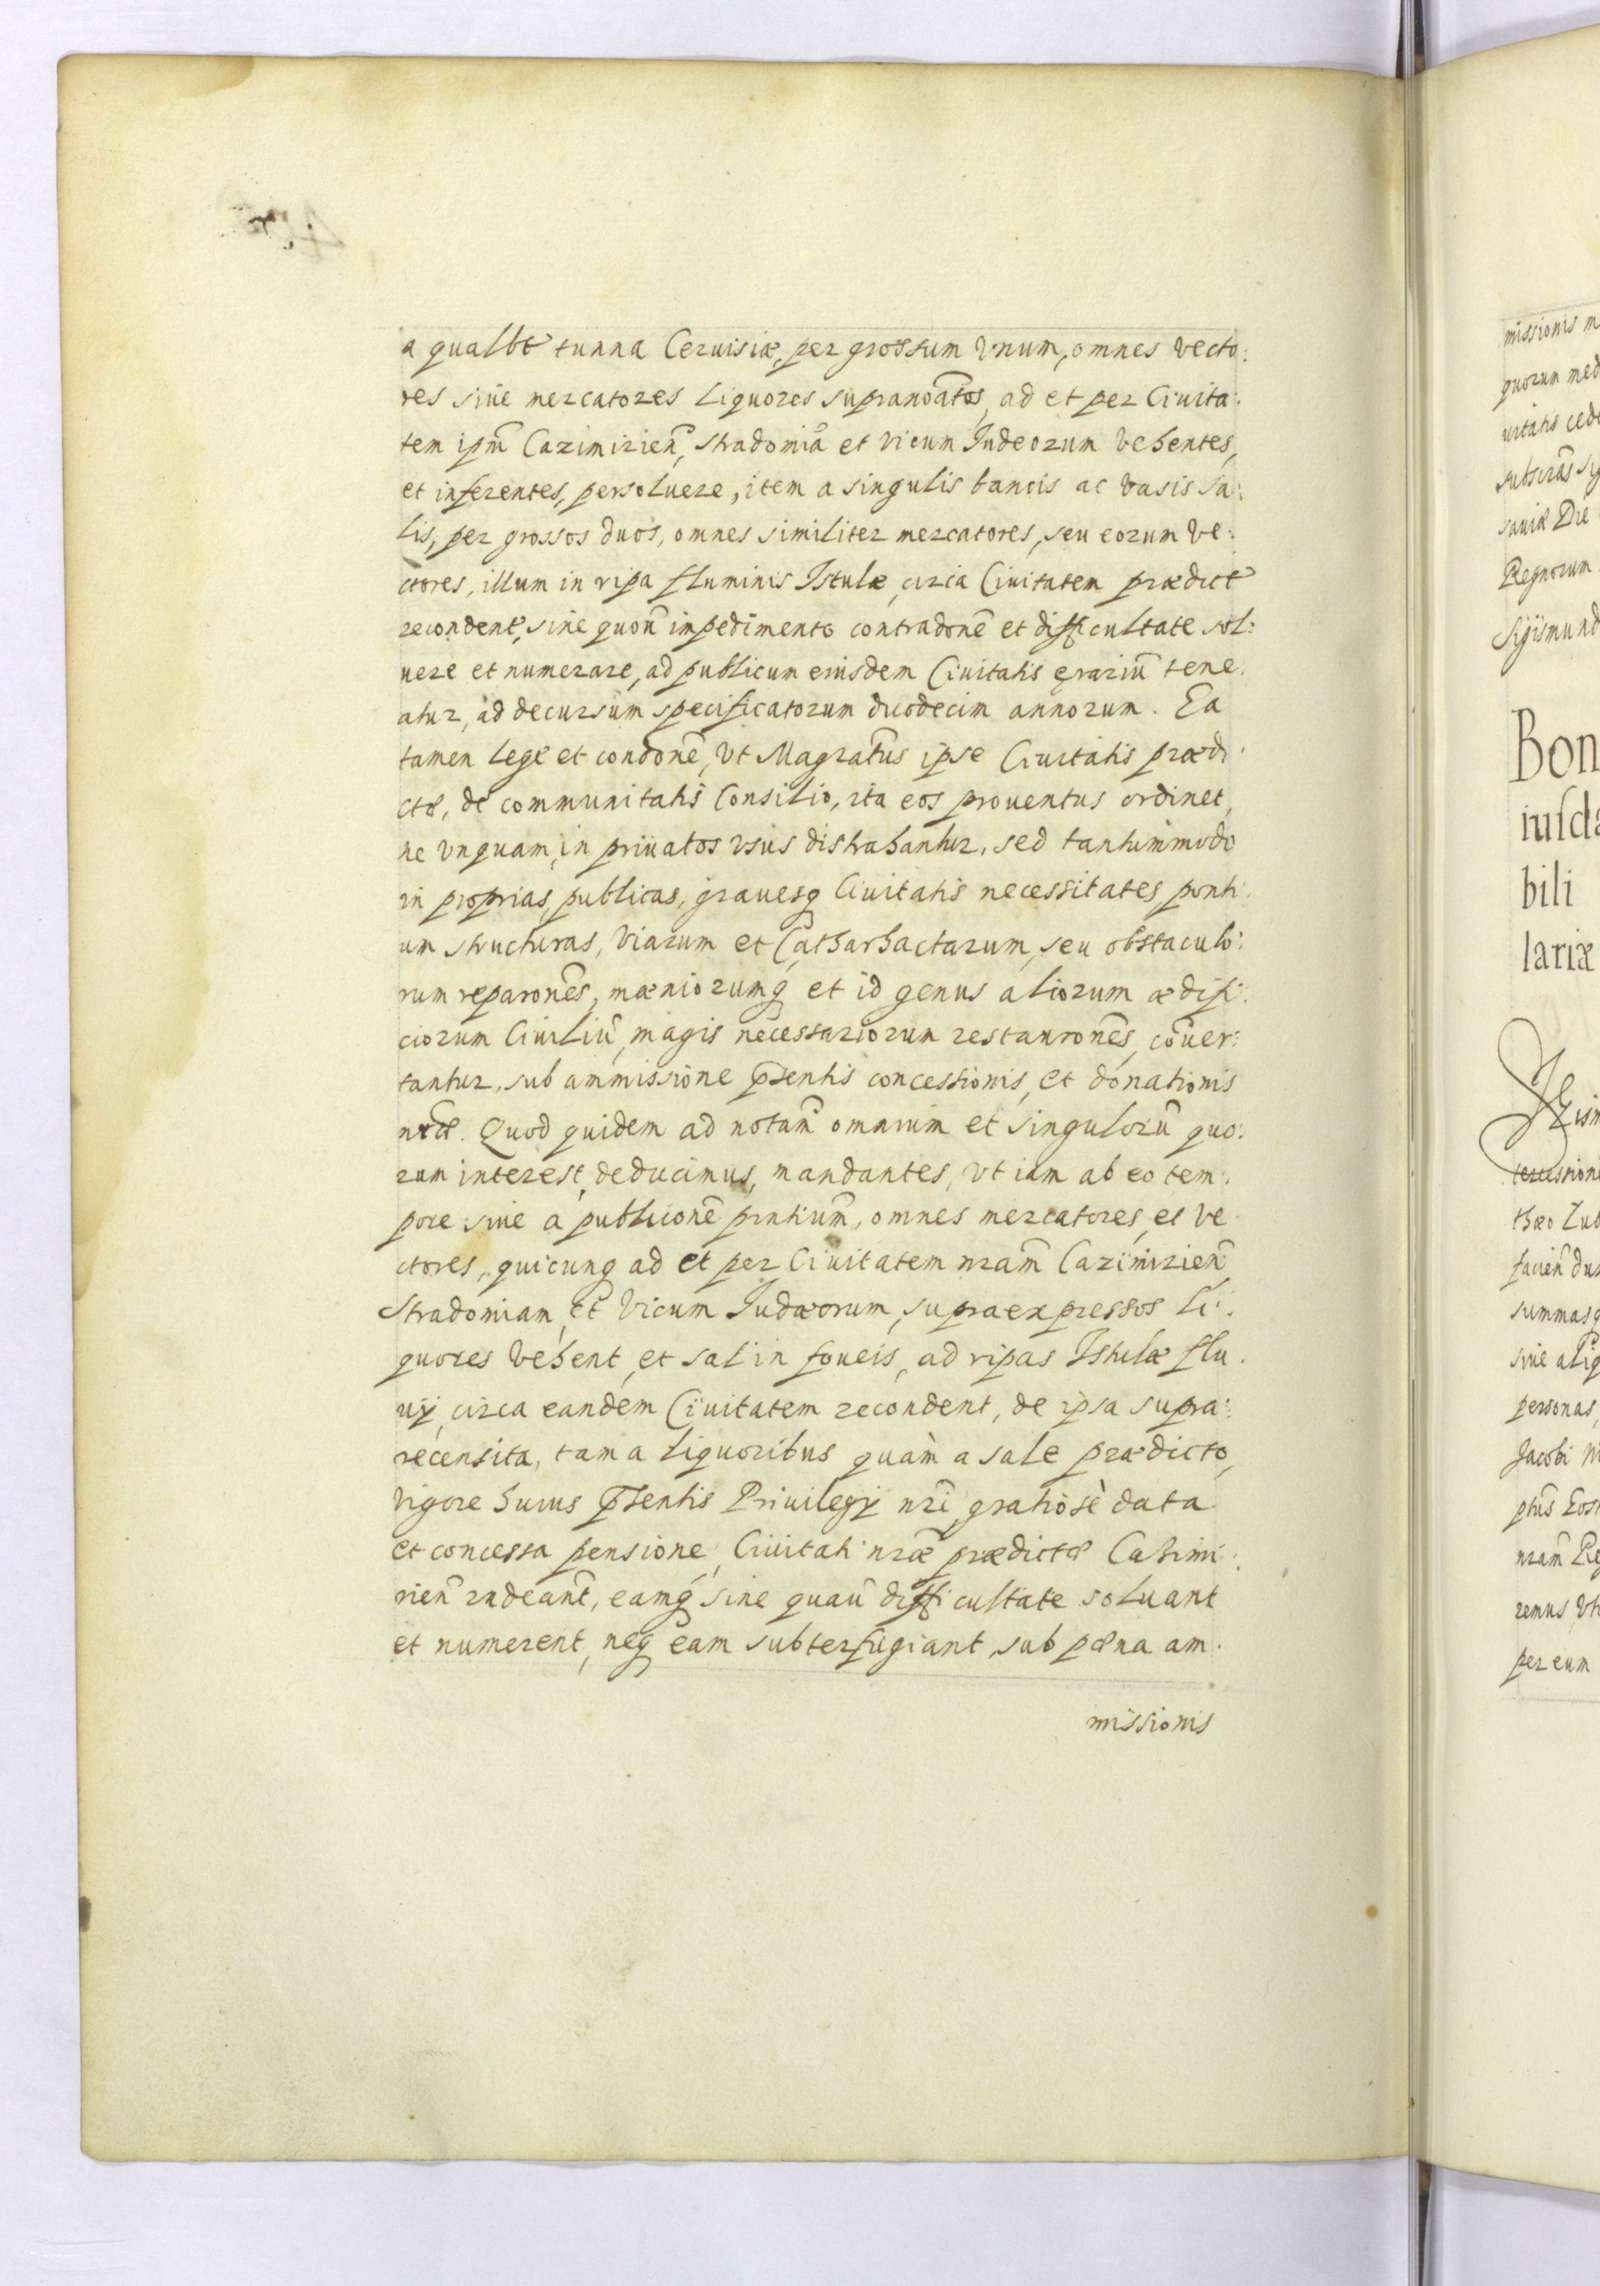 a qualbt tunna Ceruisiæ, per grossum vnum, omnes vecto:
res siue mercatores liquores supranoatos, ad et per Ciuita:
tem ipm Cazimirien, Stradomia et vicum Judeorum vehentes,
et inferentes, persoluere, item a singulis bancis ac vasis sa:
lis, per grossos duos, omnes similiter mercatores, seu eorum ve:
ctores, illum in ripa fluminis Istulæ, circa Ciuitatem prædict
recondent, sine quou impedimento contradone et difficultate sol:
uere et numerare, ad publicum eiusdem Ciuitatis ęrariu tene.
atur, ad decursum specificatorum duodecim annorum. Ea
tamen lege et condone, vt Magratus ipse Ciuitatis prædi.
ctæ, de communitatis Consilio, ita eos prouentus ordinet,
ne vnquam in priuatos vsus distrahantur, sed tantummodo
in proprias, publicas, grauesq Ciuitatis necessitates ponti:
um structuras, viarum et Catharhactarum, seu obstaculo:
rum reparones, mæniorumq et id genus aliorum ædifi:
ciorum Ciuiliu, magis necessariorum restaurones, couer:
tantur, sub ammissione pñsentis concessionis, et donationis
nræ. Quod quidem ad notam omnium et singuloru quo:
rum interest, deducimus, mandantes, vt iam ab eo tem:
pore siue a publicone pntium, omnes mercatores, et ve
ctores, quicunq ad et per Ciuitatem nram Cazimirien
Stradomiam, et Vicum Judæorum, supraexpressos li:
quores vehent, et sal in foueis, ad ripas Istulæ flu.
uij circa eandem Ciuitatem recondent, de ipsa supra:
recensita, tam a liquoribus quàm a sale prædicto,
vigore huius pñsentis Priuilegij nri gratiosè data
et concessa pensione, Ciuitati nræ prædictæ Casimi:
rien rndeant, eamq sine quau difficultate soluant
et numerent, neq eam subterfugiant, sub pœna am.
missionis
missionis
quorum
uitatis
Die
Regnorum
Sigismund
Bon
iusda
bili
lariæ
summasq
siue aliq
personas,
Jacobi
nram
remus
per eum